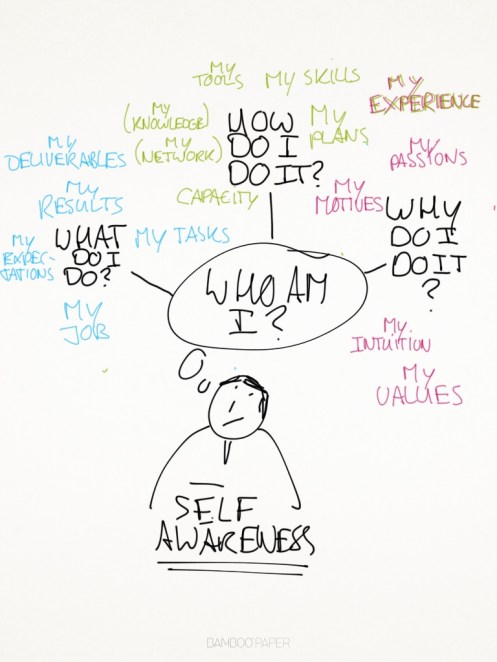 MY
TOOLS
MY SKILLS
MY
EXPERIENCE
MY
(KNOWLEDGE)
HOW
DO I
DO IT?
MY
PLANS
MY
(NETWORK)
CAPACITY
MY
DELIVERABLES
MY
RESULTS
MY
EXPEC-
TATIONS
WHAT
DO I
DO?
MY TASKS
MY
JOB
MY
PASSIONS
MY
MOTIVES
WHY
DO I
DO IT
?
MY
INTUITION
MY
VALUES
WHO AM
I?
SELF
AWARENESS
BAMBOO PAPER